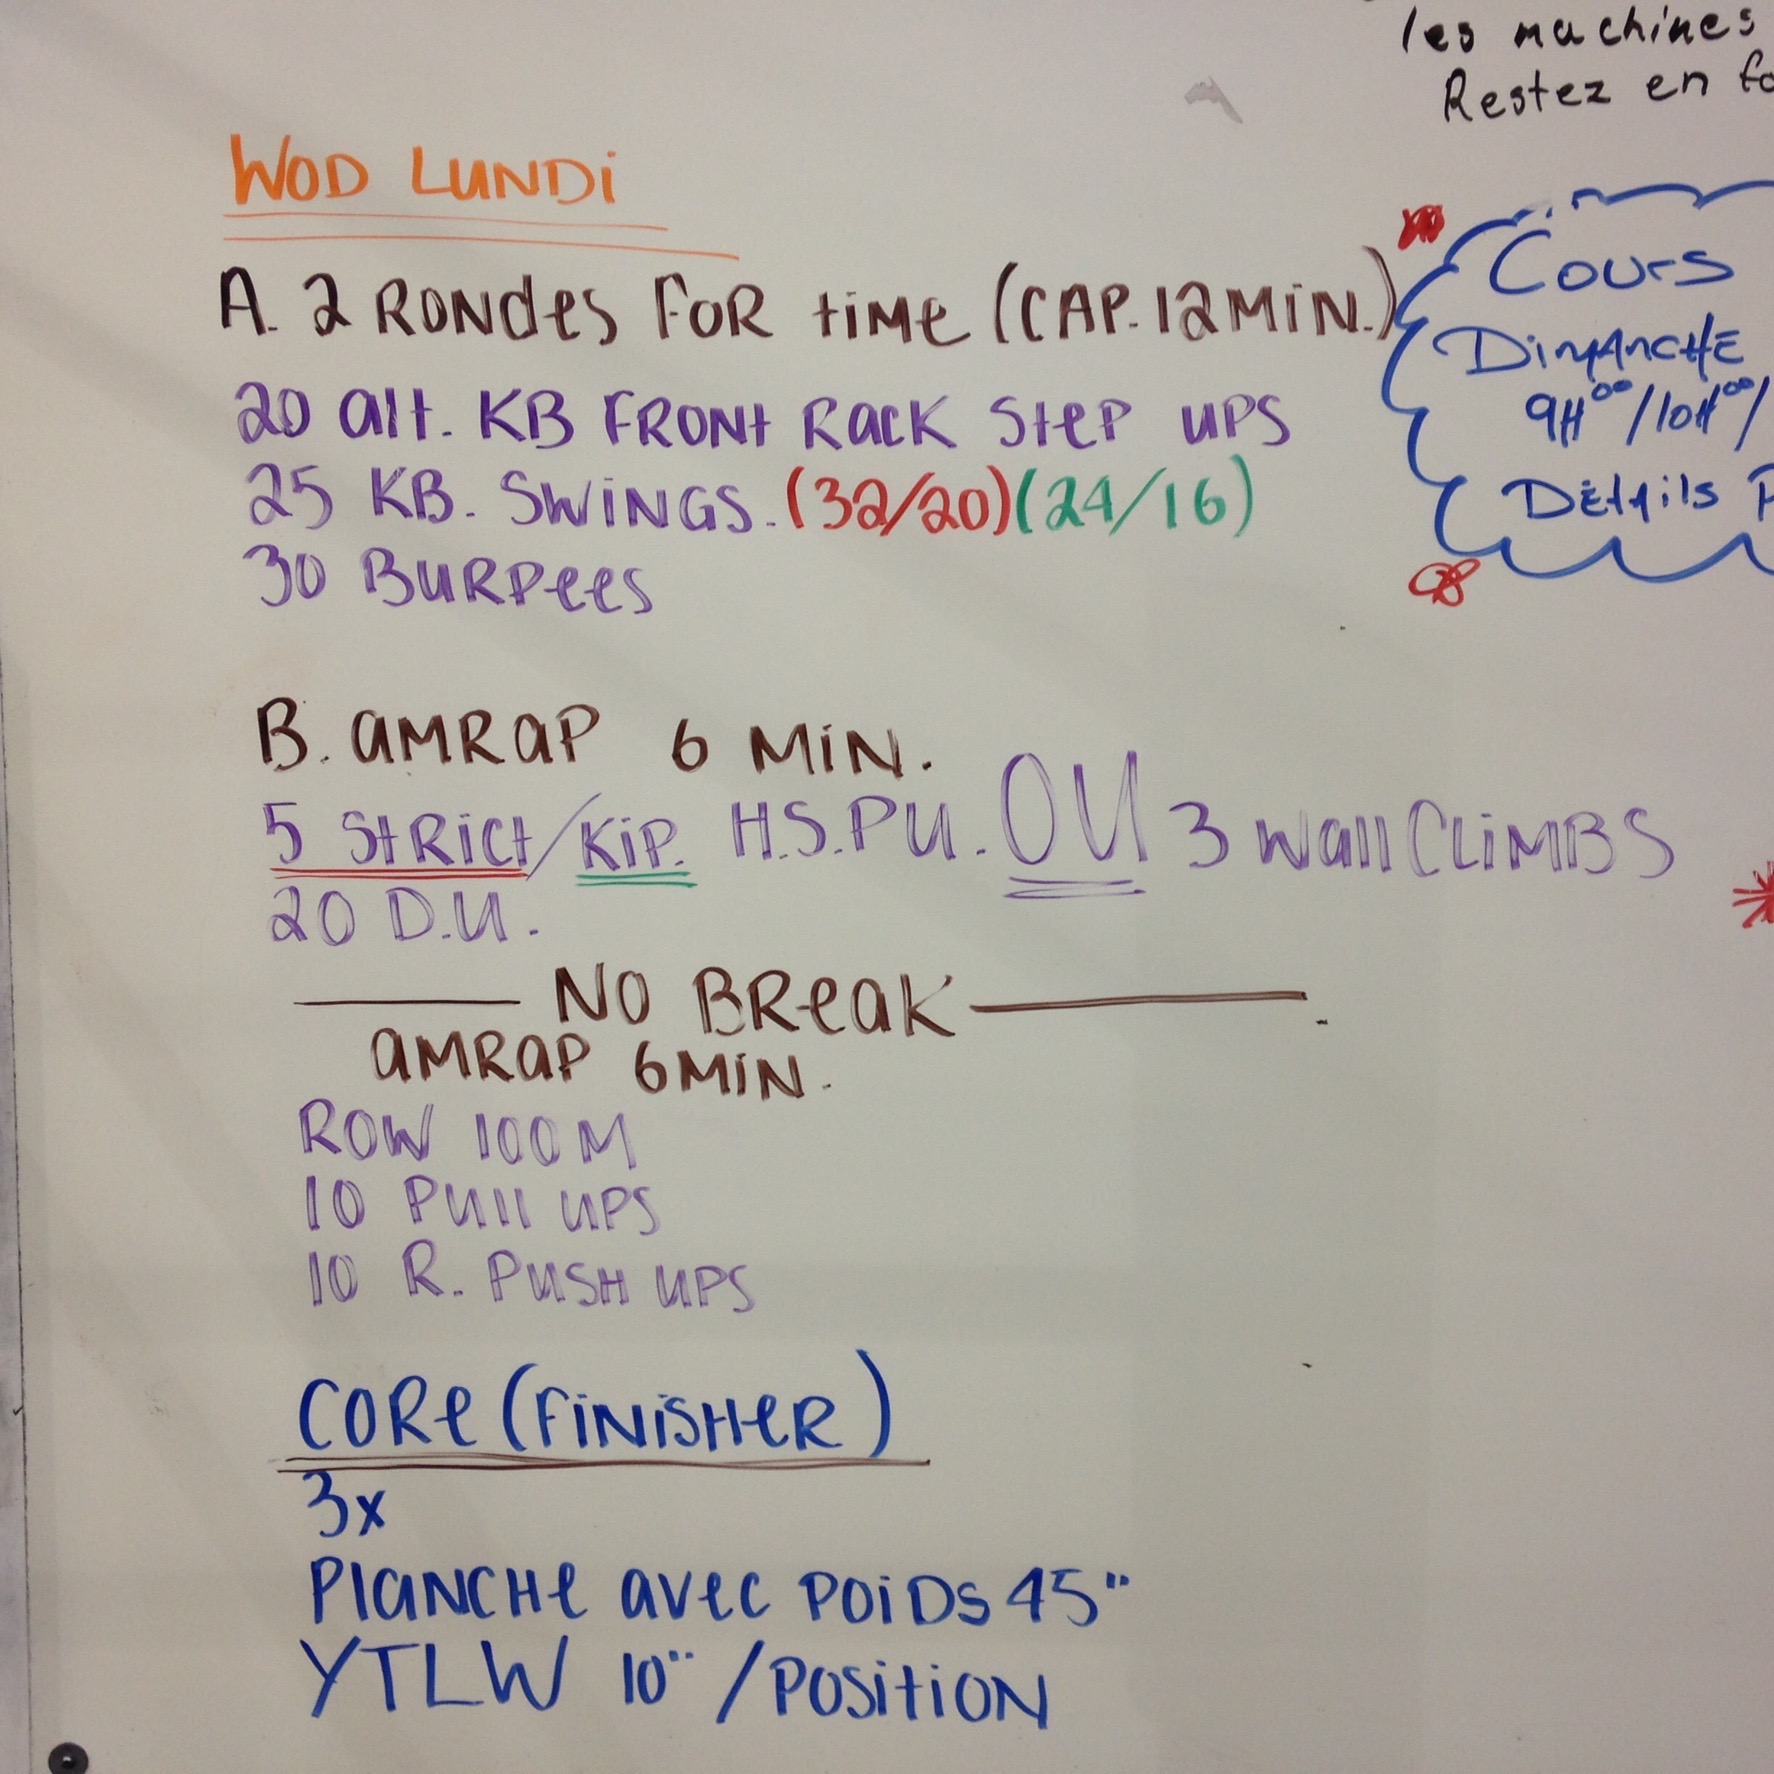 les machines
Restez en
WOD LUNDi
A. 2 RONdes FOR time (CAP. 12 MiN.)
20 alt. KB FRONt Rack Step ups
25 KB. SWiNGS. (32/20)(24/16)
30 BuRpees
Cours
DimAncHE
9H00/10H00/
Détails P
B. aMRaP 6 MiN.
5 StRict/KiP. H.S.P.U. OU 3 wall CLiMBS
20 D.U.
NO BReak
aMRaP 6 MiN.
ROW 100 M
10 Pull uPS
10 R. PuSH uPS
CORe (FiNiSHeR)
3x
PlaNCHe avec poiDs 45"
YTLW 10" / POSitiON